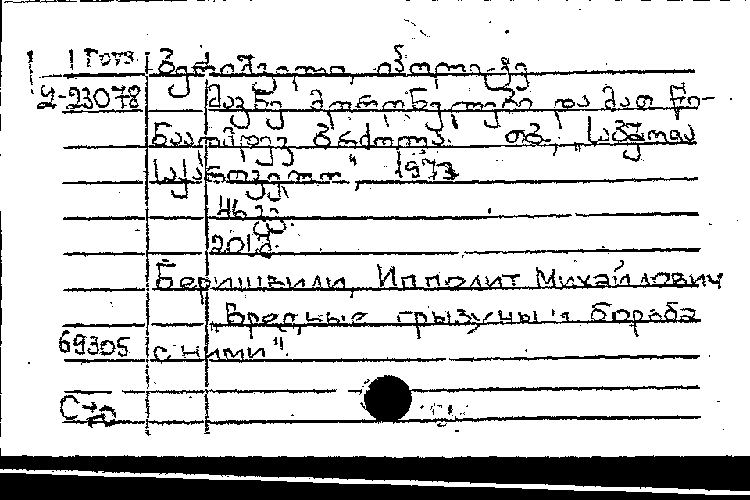 ბერიშვილი, იპოლიტე
Ⴤ-23078 მავნე მღრღნელები და მათ წი-
ნააღმდეგ ბრძოლა. თბ., „საბჭოთა
საქართველო", 1973
46 გვ.
20
Беришвили, Ипполит Михайлович
"Вредные грызуны и борьба
69305 с ними".